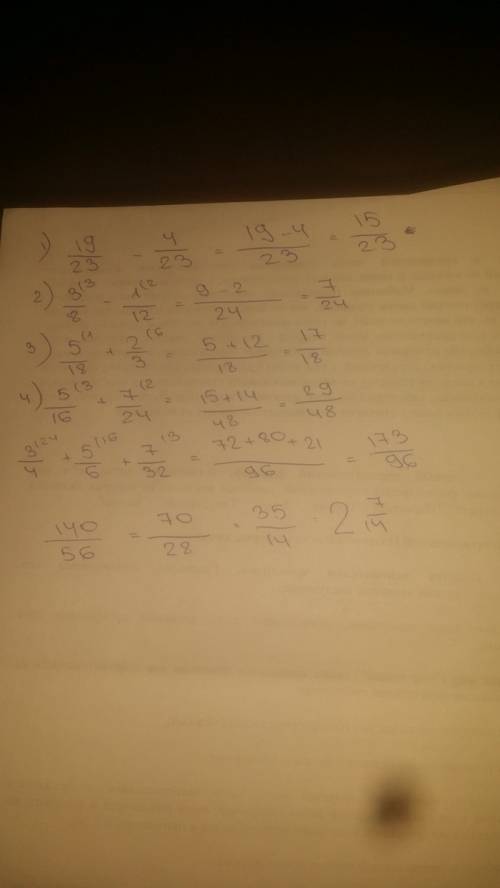 1) 19/23 - 4/23 = 19-4/23 = 15/23
2) 3(3/8 - 1(2/12 = 9-2/24 = 7/24
3) 5(1/18 + 2(6/3 = 5+12/18 = 17/18
4) 5(3/16 + 7(2/24 = 15+14/48 = 29/48
3(24/4 + 5(16/6 + 7(3/32 = 72+80+21/96 = 173/96
140/56 = 70/28 = 35/14 = 2 7/14